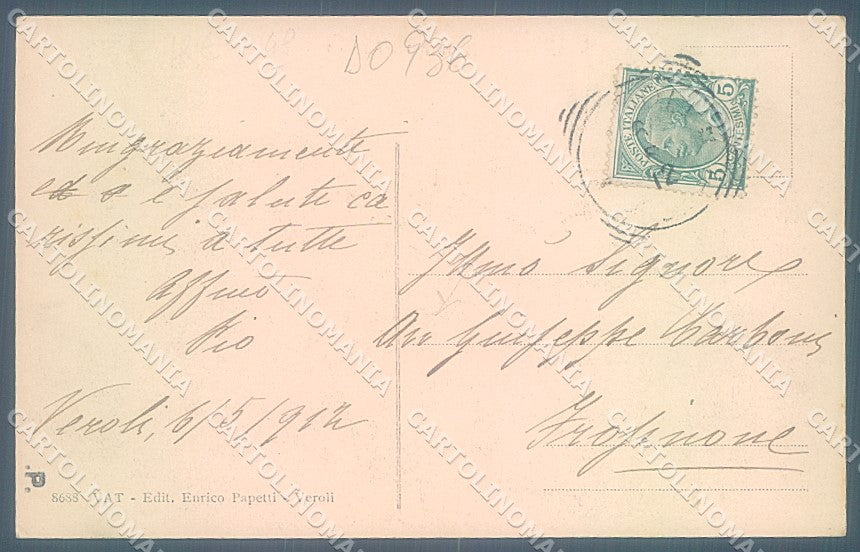 DO 936
Ringraziamenti
e saluti ca
rissimi a tutte
Affmo
Pio
Veroli, 6/5/912
Illmo Signore
Avv Giuseppe Carboni
Frosinone
POSTE ITALIANE
5 5
8688 VAT - Edit. Enrico Papetti - Veroli
.P.
CARTOLINOMANIA